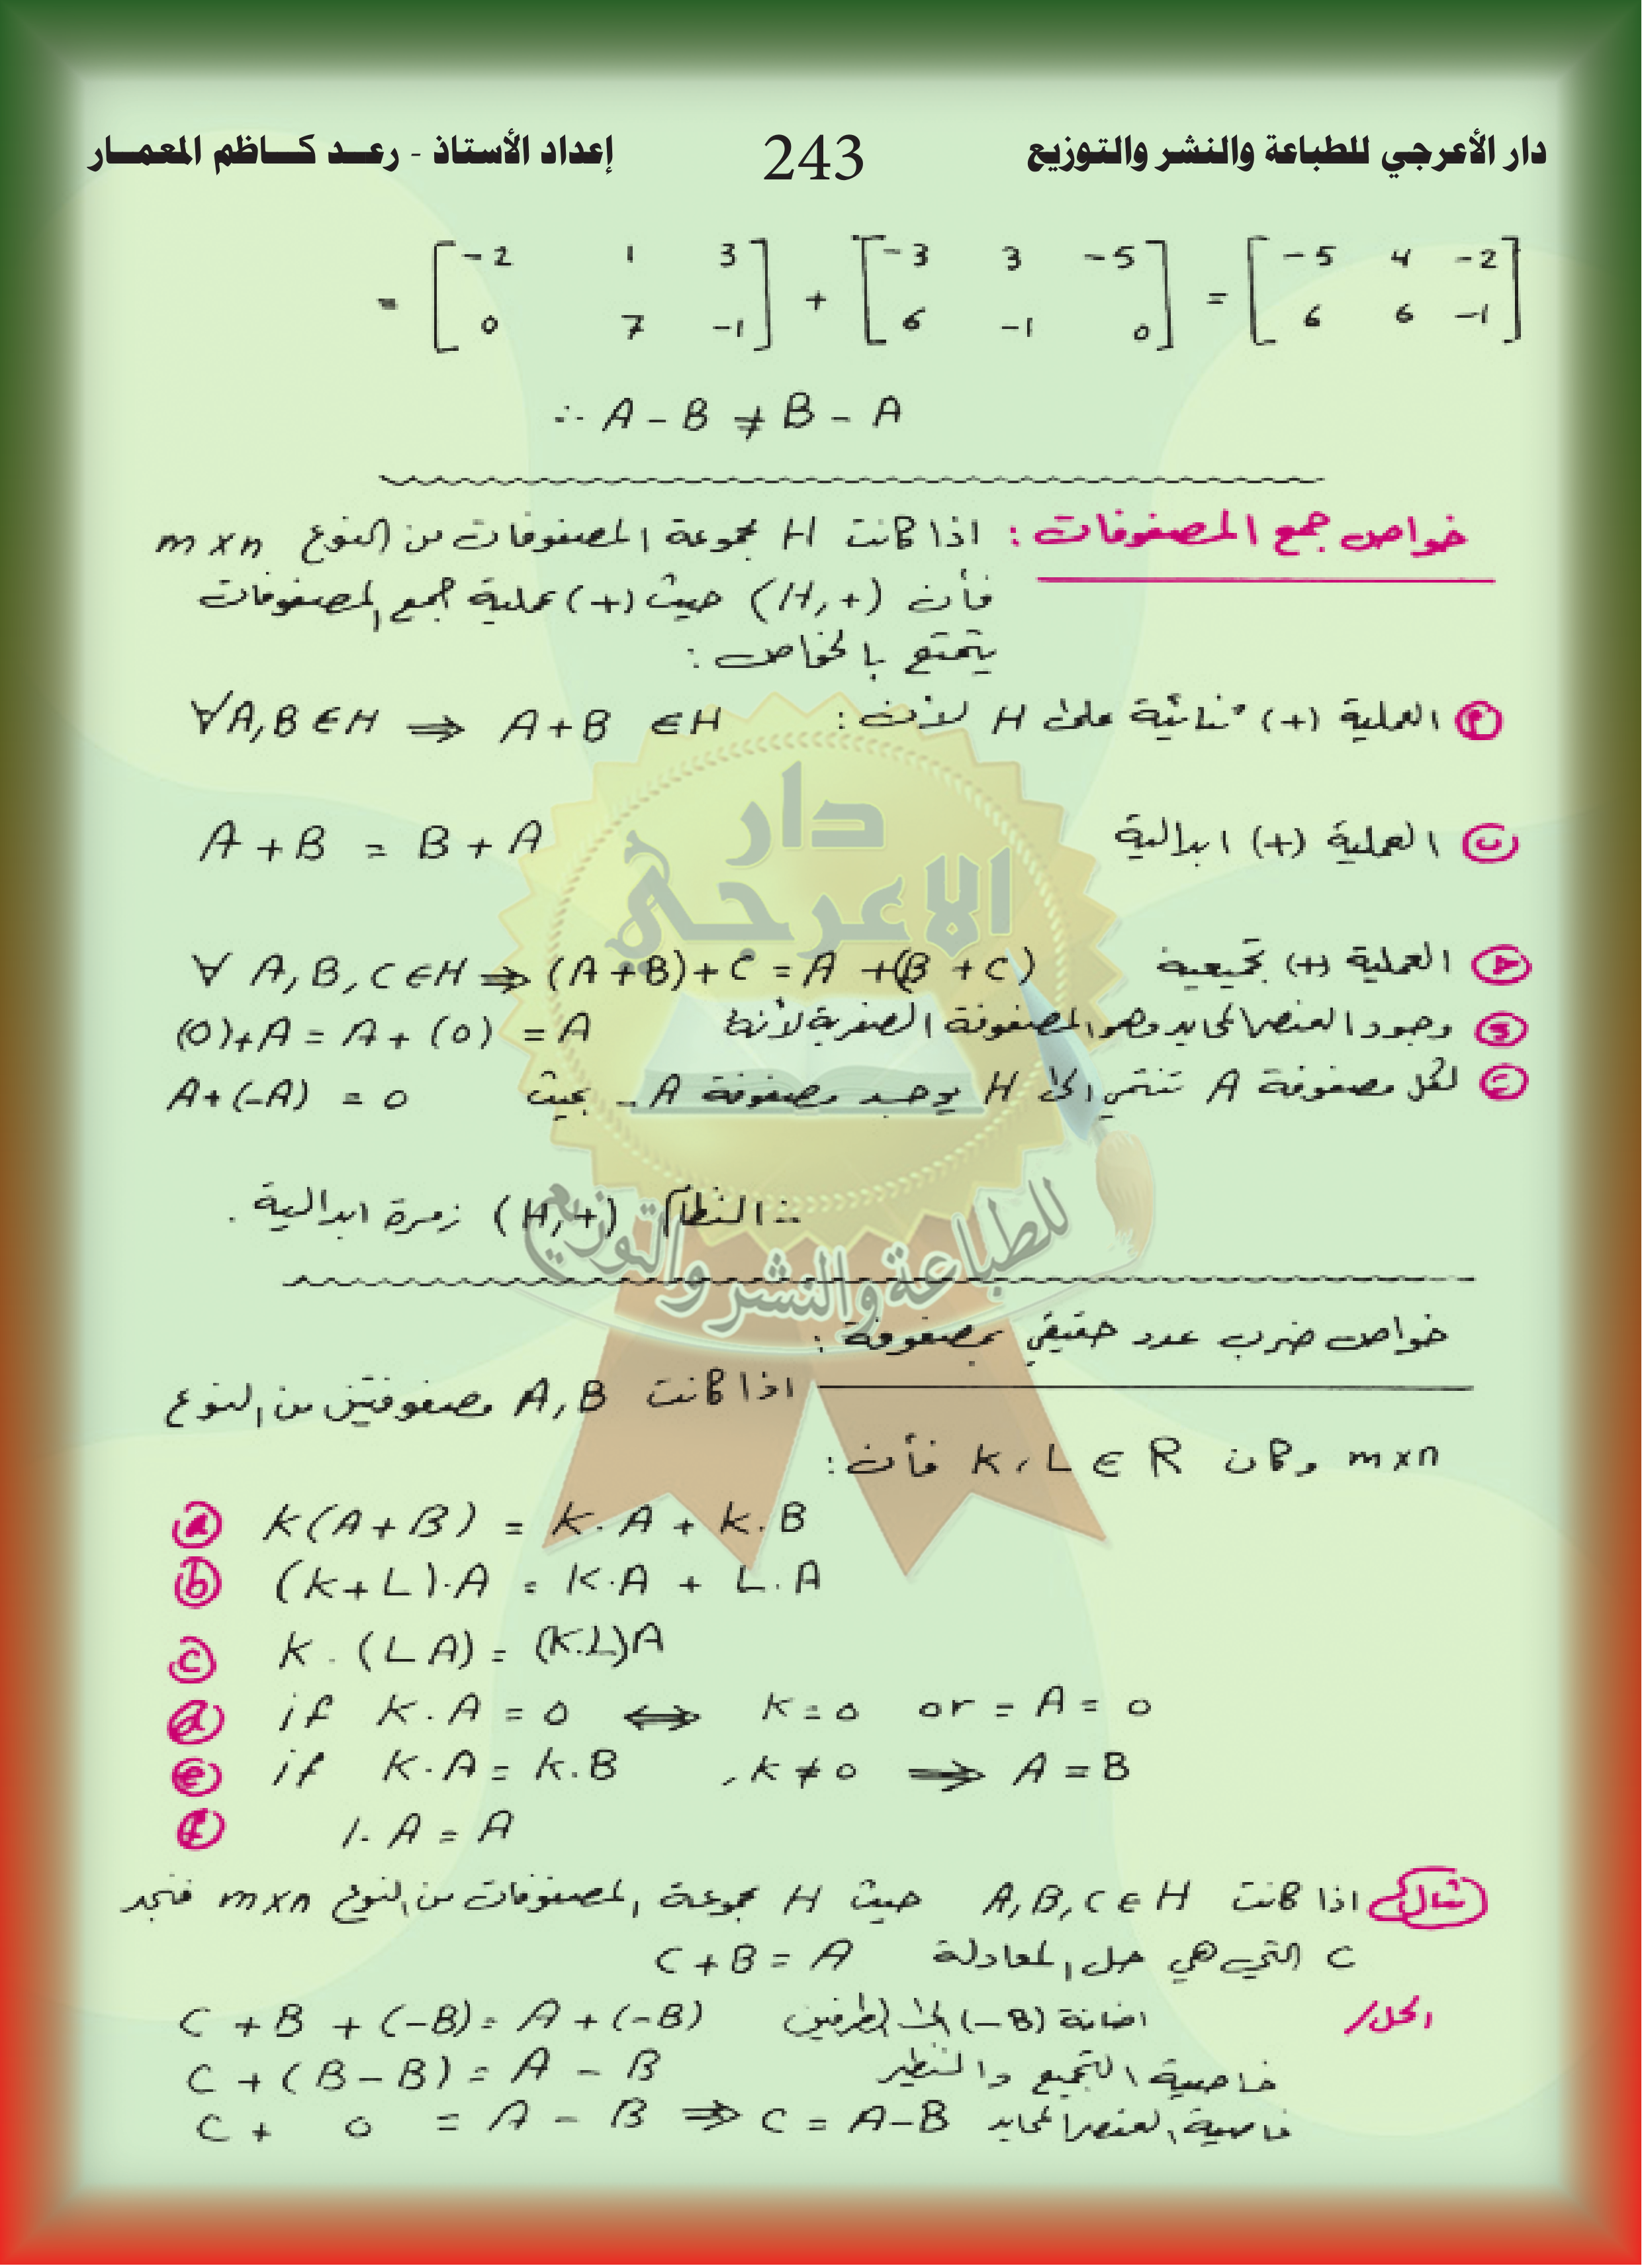 دار الأعرجي للطباعة والنشر والتوزيع 243 إعداد الأستاذ - رعـد كـاظم المعمـار
= [ -2 1 3 ] + [ -3 3 -5 ] = [ -5 4 -2 ]
[ 0 7 -1 ] [ 6 -1 0 ] [ 6 6 -1 ]
∴ A - B ≠ B - A
خواص جمع المصفوفات : اذا كانت H مجموعة المصفوفات من النوع m×n
فأن (H,+) حيث (+) عملية جمع المصفوفات
يتمتع بالخواص :
العملية (+) ثنائية على H لأن : ∀A,B∈H ⇒ A+B ∈H
ب العملية (+) ابدالية A + B = B + A
العملية (+) تجميعية ∀ A,B,C∈H ⇒ (A+B)+C = A +(B +C)
وجود العنصر المحايد وهو المصفوفة الصفرية لأنها (0)+A = A+(0) = A
لكل مصفوفة A تنتمي الى H يوجد مصفوفة -A بحيث A+(-A) = 0
∴ النظام (H,+) زمرة ابدالية .
دار
الاعرجي
للطباعة والنشر والتوزيع
خواص ضرب عدد حقيقي بمصفوفة :
اذا كانت A,B مصفوفتين من النوع
m×n وكان K,L∈R فأن :
a K(A+B) = K.A + K.B
b (K+L).A = K.A + L.A
c K.(LA) = (K.L)A
d if K.A = 0 ⇔ K=0 or = A = 0
e if K.A = K.B , K≠0 ⇒ A = B
f 1.A = A
مثال اذا كانت A,B,C∈H حيث H مجموعة المصفوفات من النوع m×n فتجد
C التي هي حل المعادلة C+B = A
الحل/ اضافة (-B) الى الطرفين C + B + (-B) = A + (-B)
خاصية التجميع والنظير C + (B - B) = A - B
خاصية العنصر المحايد C + 0 = A - B ⇒ C = A-B